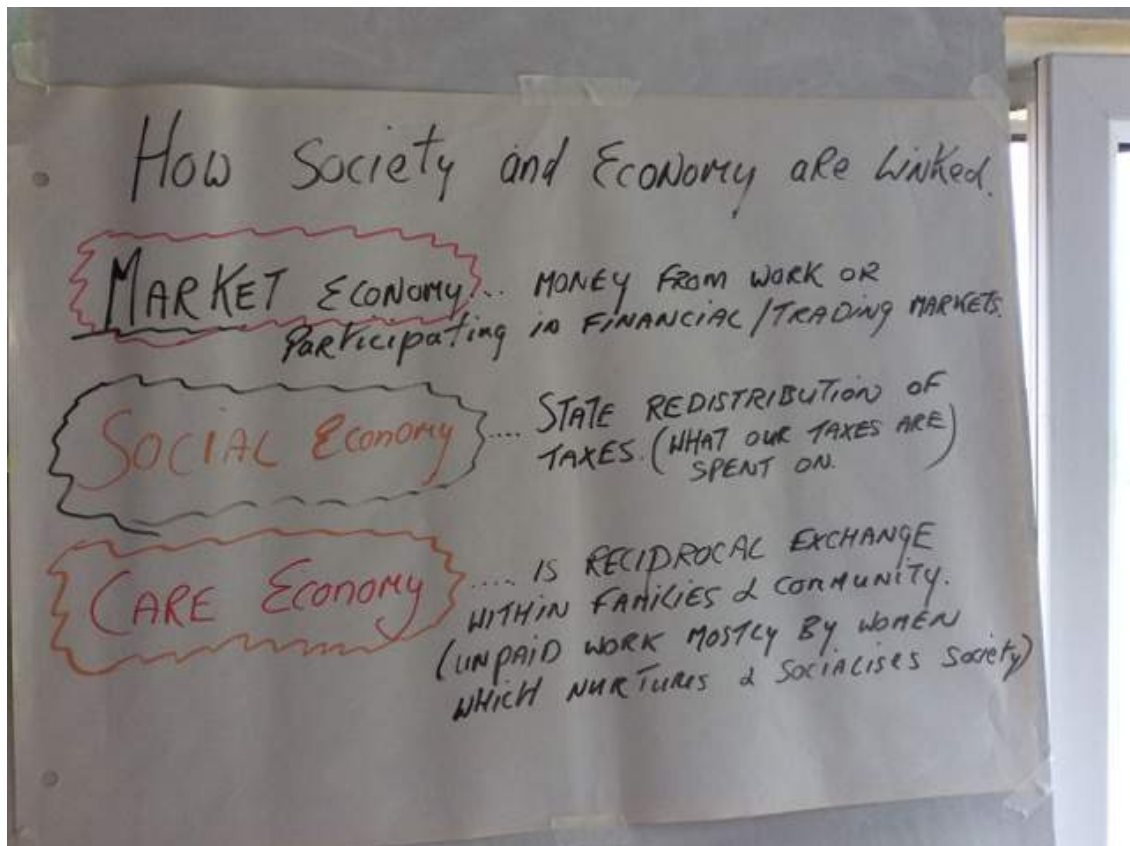 How Society and Economy are Linked.
MARKET Economy... MONEY FROM WORK OR
Participating in FINANCIAL/TRADING MARKETS.
SOCIAL Economy .... STATE REDISTRIBUTION OF
TAXES. (WHAT OUR TAXES ARE)
SPENT ON.
CARE Economy ..... IS RECIPROCAL EXCHANGE
WITHIN FAMILIES & COMMUNITY.
(UNPAID WORK MOSTLY BY WOMEN
WHICH NURTURES & SOCIALISES Society)